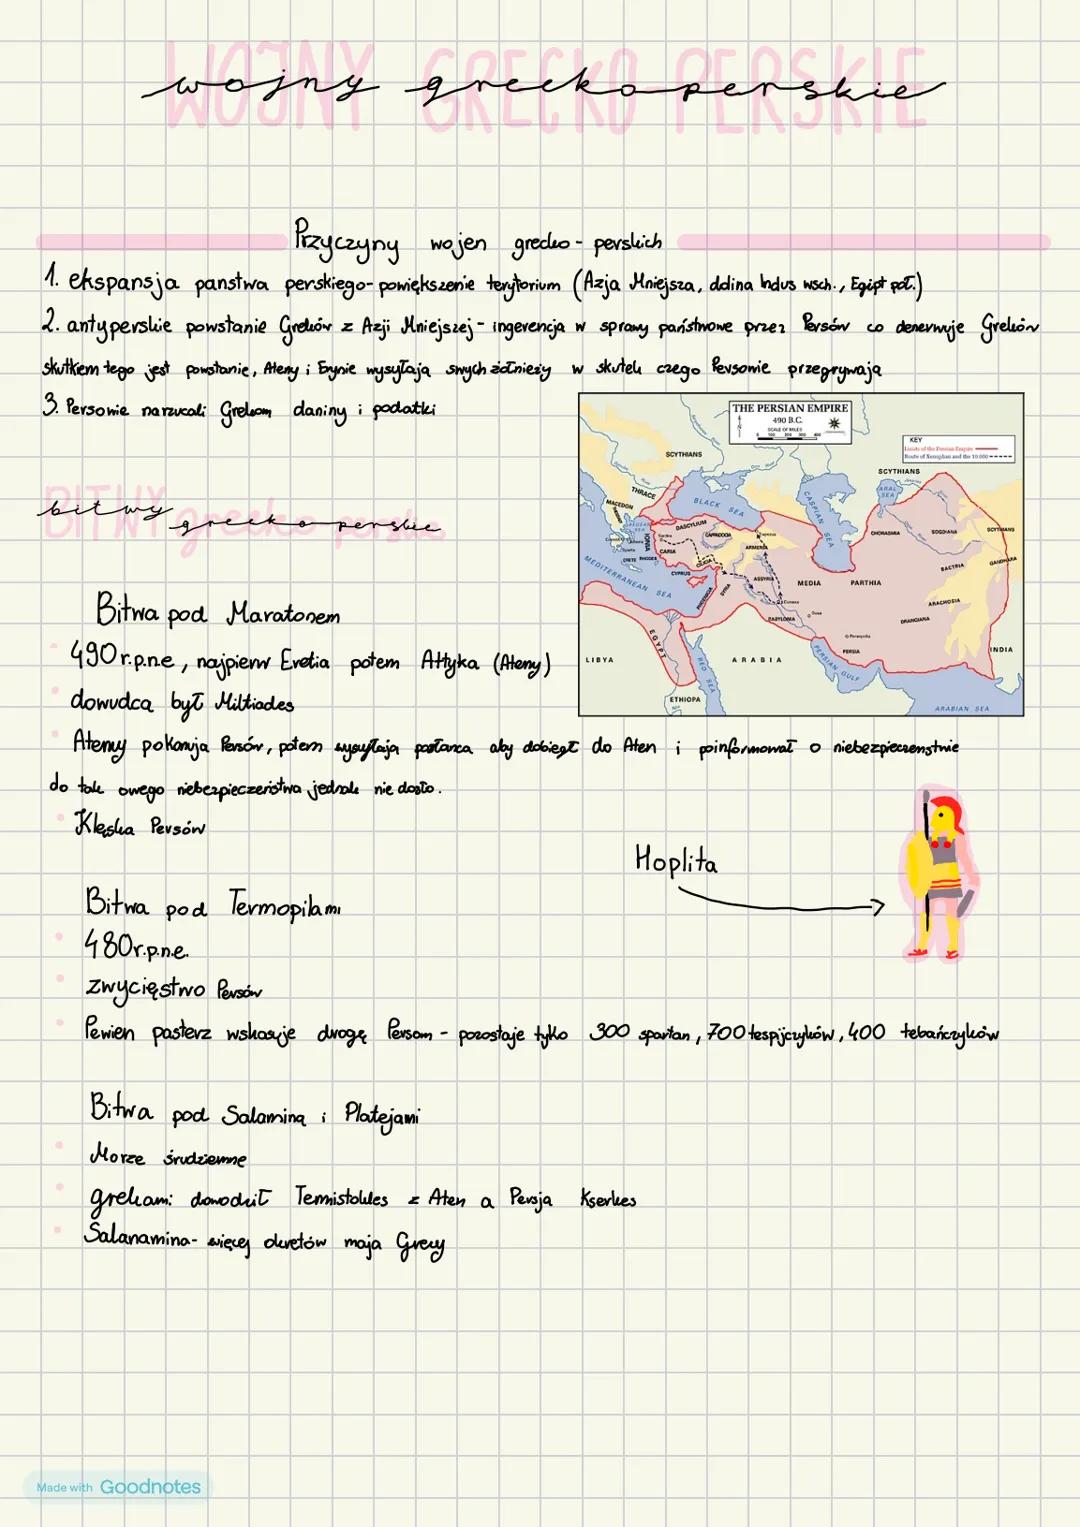 WOJNY GRECKO PERSKIE
wojny grecko perskie
Przyczyny wojen grecko - perskich
1. ekspansja panstwa perskiego - powiększenie terytorium (Azja Mniejsza, dolina Indus wsch., Egipt poł.)
2. antyperskie powstanie Greków z Azji Mniejszej - ingerencja w sprawy państwowe przez Persów co denerwuje Greków
skutkiem tego jest powstanie, Ateny i Erynie wysyłają swych żołnieży w skutek czego Persowie przegrywają
3. Persowie narzucali Grekom daniny i podatki
THE PERSIAN EMPIRE
490 B.C.
SCALE OF MILES
0 100 200 300 400
KEY
Limits of the Persian Empire
Route of Xenophon and the 10.000
SCYTHIANS
SCYTHIANS
ARAL SEA
THRACE
MACEDON
BLACK SEA
CASPIAN SEA
AEGEAN SEA
DASCYLIUM
CAPPADOCIA
CHORASMIA
SOGDIANA
SCYTHIANS
IONIA
Sardis
CARIA
ARMENIA
Sparta
CRETE
RHODES
CILICIA
BACTRIA
GANDHARA
MEDITERRANEAN SEA
CYPRUS
ASSYRIA
MEDIA
PARTHIA
PHOENICIA
SYRIA
Cunaxa
ARACHOSIA
BABYLONIA
Susa
DRANGIANA
EGYPT
Persepolis
LIBYA
ARABIA
PERSIA
INDIA
PERSIAN GULF
RED SEA
ETHIOPIA
ARABIAN SEA
BITWY grecko perskie
bitwy grecko perskie
Bitwa pod Maratonem
490 r.p.n.e, najpierw Eretia potem Attyka (Ateny)
dowudca był Miltiades
Atenny pokonuja Persów, potem wysyłają posłańca aby dobiegł do Aten i poinformował o niebezpieczenstwie
do tak owego niebezpieczeństwa jednak nie dosło.
Klęska Persów
Hoplita
Bitwa pod Termopilami
480r.p.n.e.
zwycięstwo Persów
Pewien pasterz wskasuje drogę Persom - pozostaje tylko 300 spartan, 700 tespijczyków, 400 tebańczyków
Bitwa pod Salaminą i Platejami
Morze śrudziemne
grekami dowodził Temistokles z Aten a Persja Kserkes
Salanamina - więcej okretów maja Grecy
Made with Goodnotes